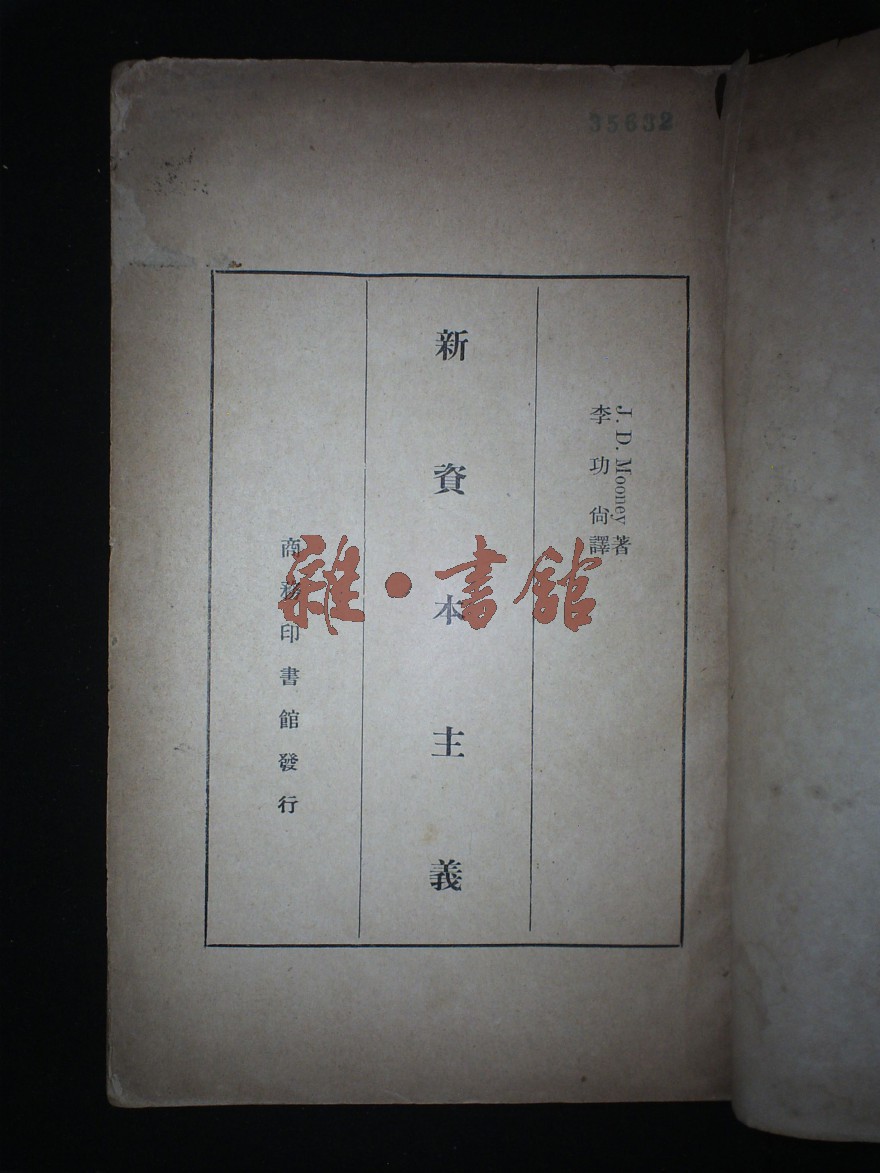 35632
J. D. Mooney 著
李功尙譯
新資本主義
商務印書館發行
雜·書館